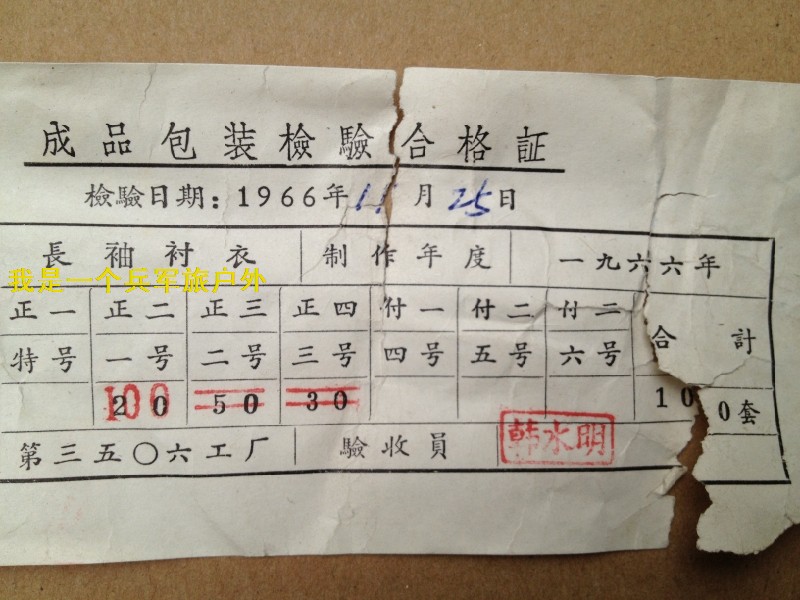 成品包装檢驗合格証
檢驗日期：1966年11月25日
長袖衬衣 制作年度 一九六六年
我是一个兵军旅户外
正一 正二 正三 正四 付一 付二 付二 合計
特号 一号 二号 三号 四号 五号 六号
100 20 50 30 100套
第三五〇六工厂 驗收員 韩水明